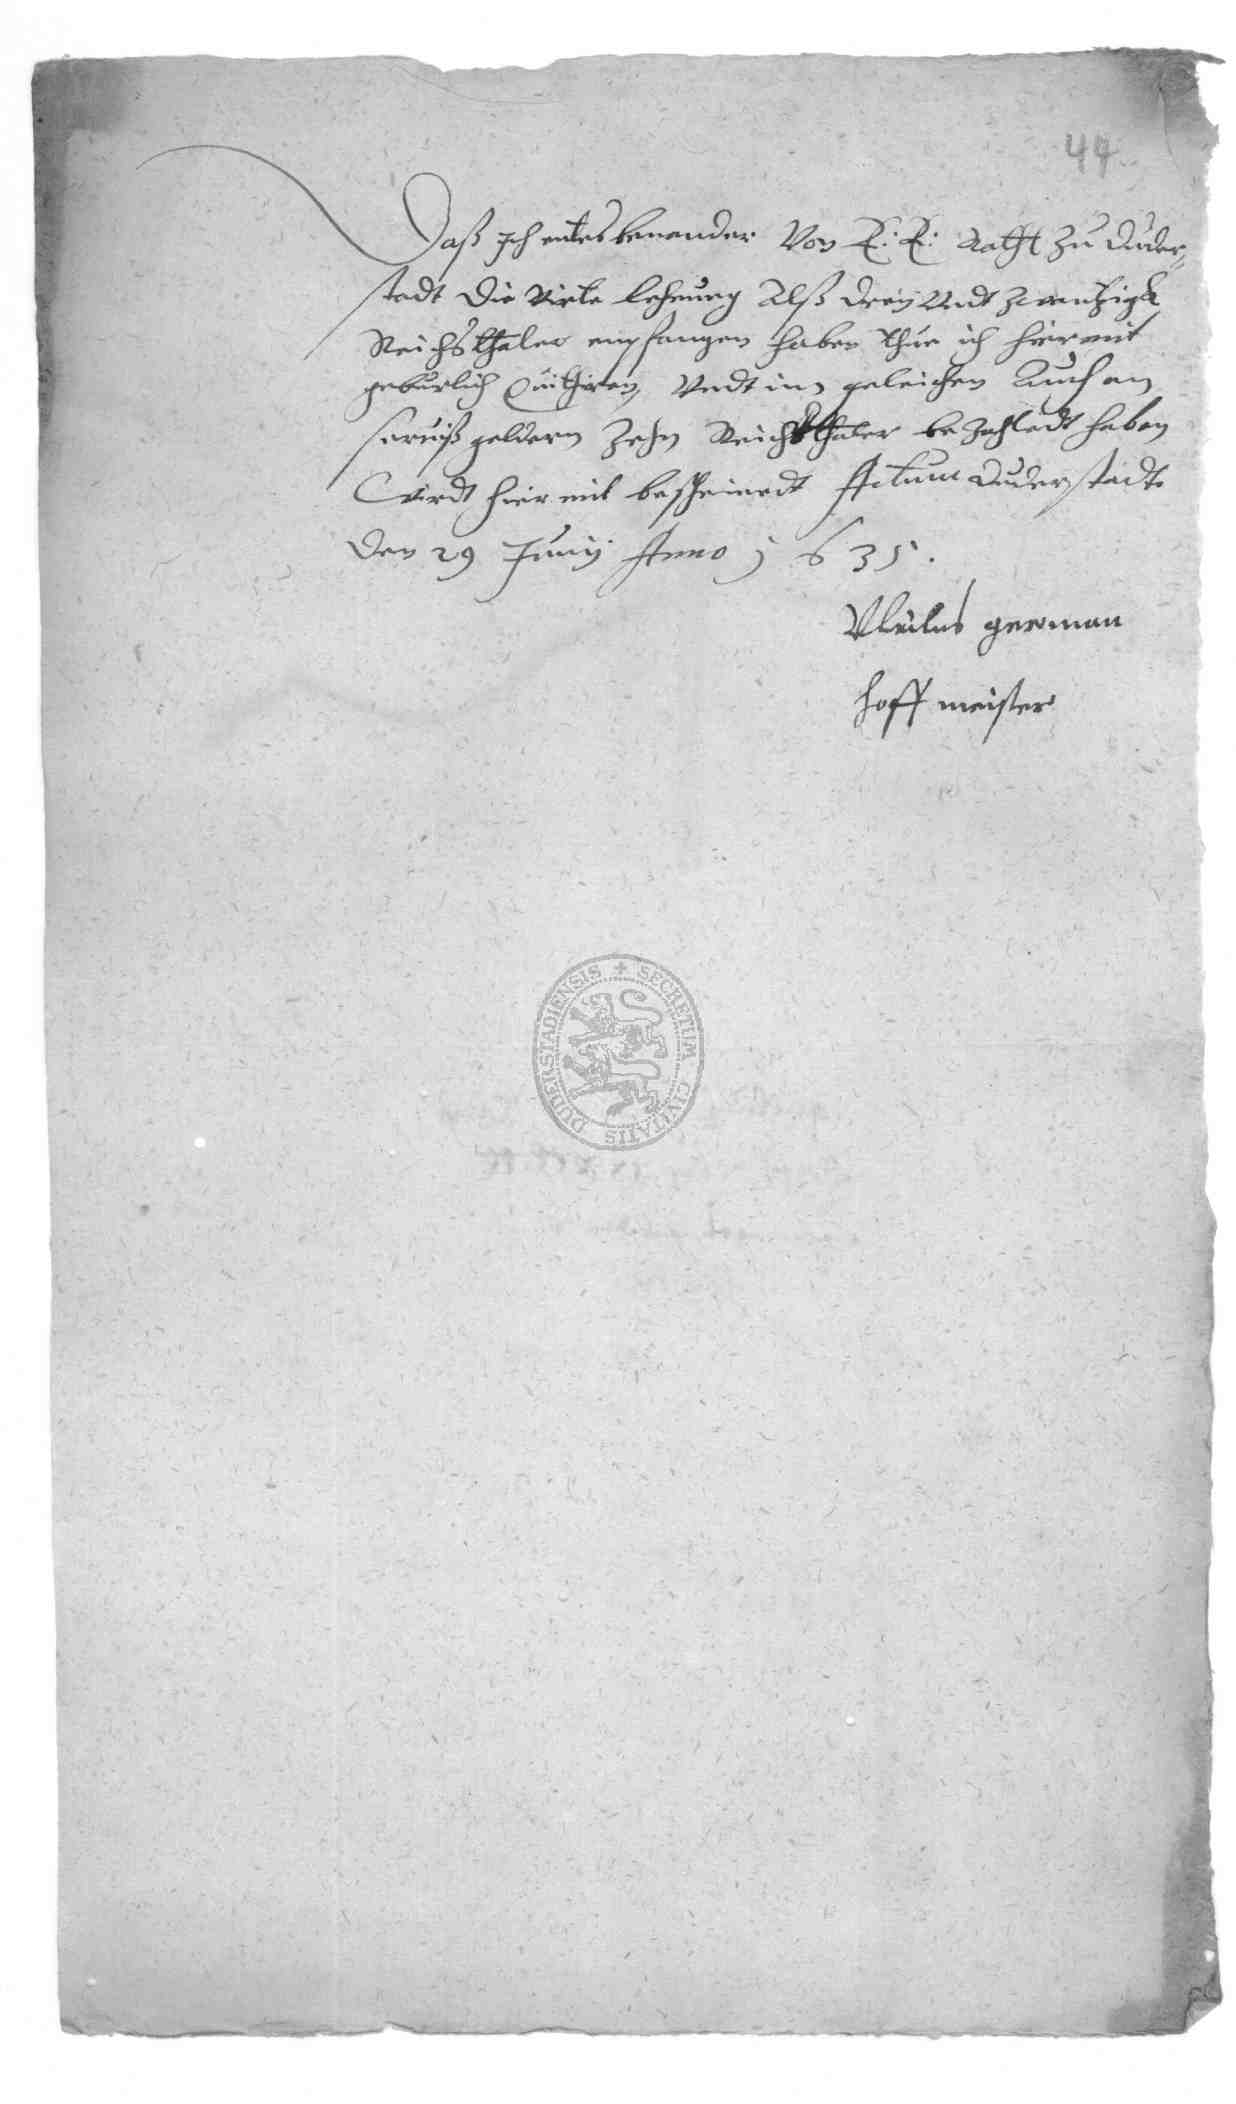 44
Daß Ich entes benander Von E: E: Ratht Zu Duder„
stadt Die Virte lehnung Alß dreÿ Vndt Zwantzigk
Reichsthaler empfangen haben thue ich hiermit
geburlich Quithiren, Vndt im geleichen Auch an
serviß geldern Zehn Reichsthaler bezahledt haben
Wirdt hiermit bescheinedt Actum Duderstadt
den 29 Junÿ Anno 1635.
german
hoffmeister
SECRETUM CIVITATIS DUDERSTADIENSIS